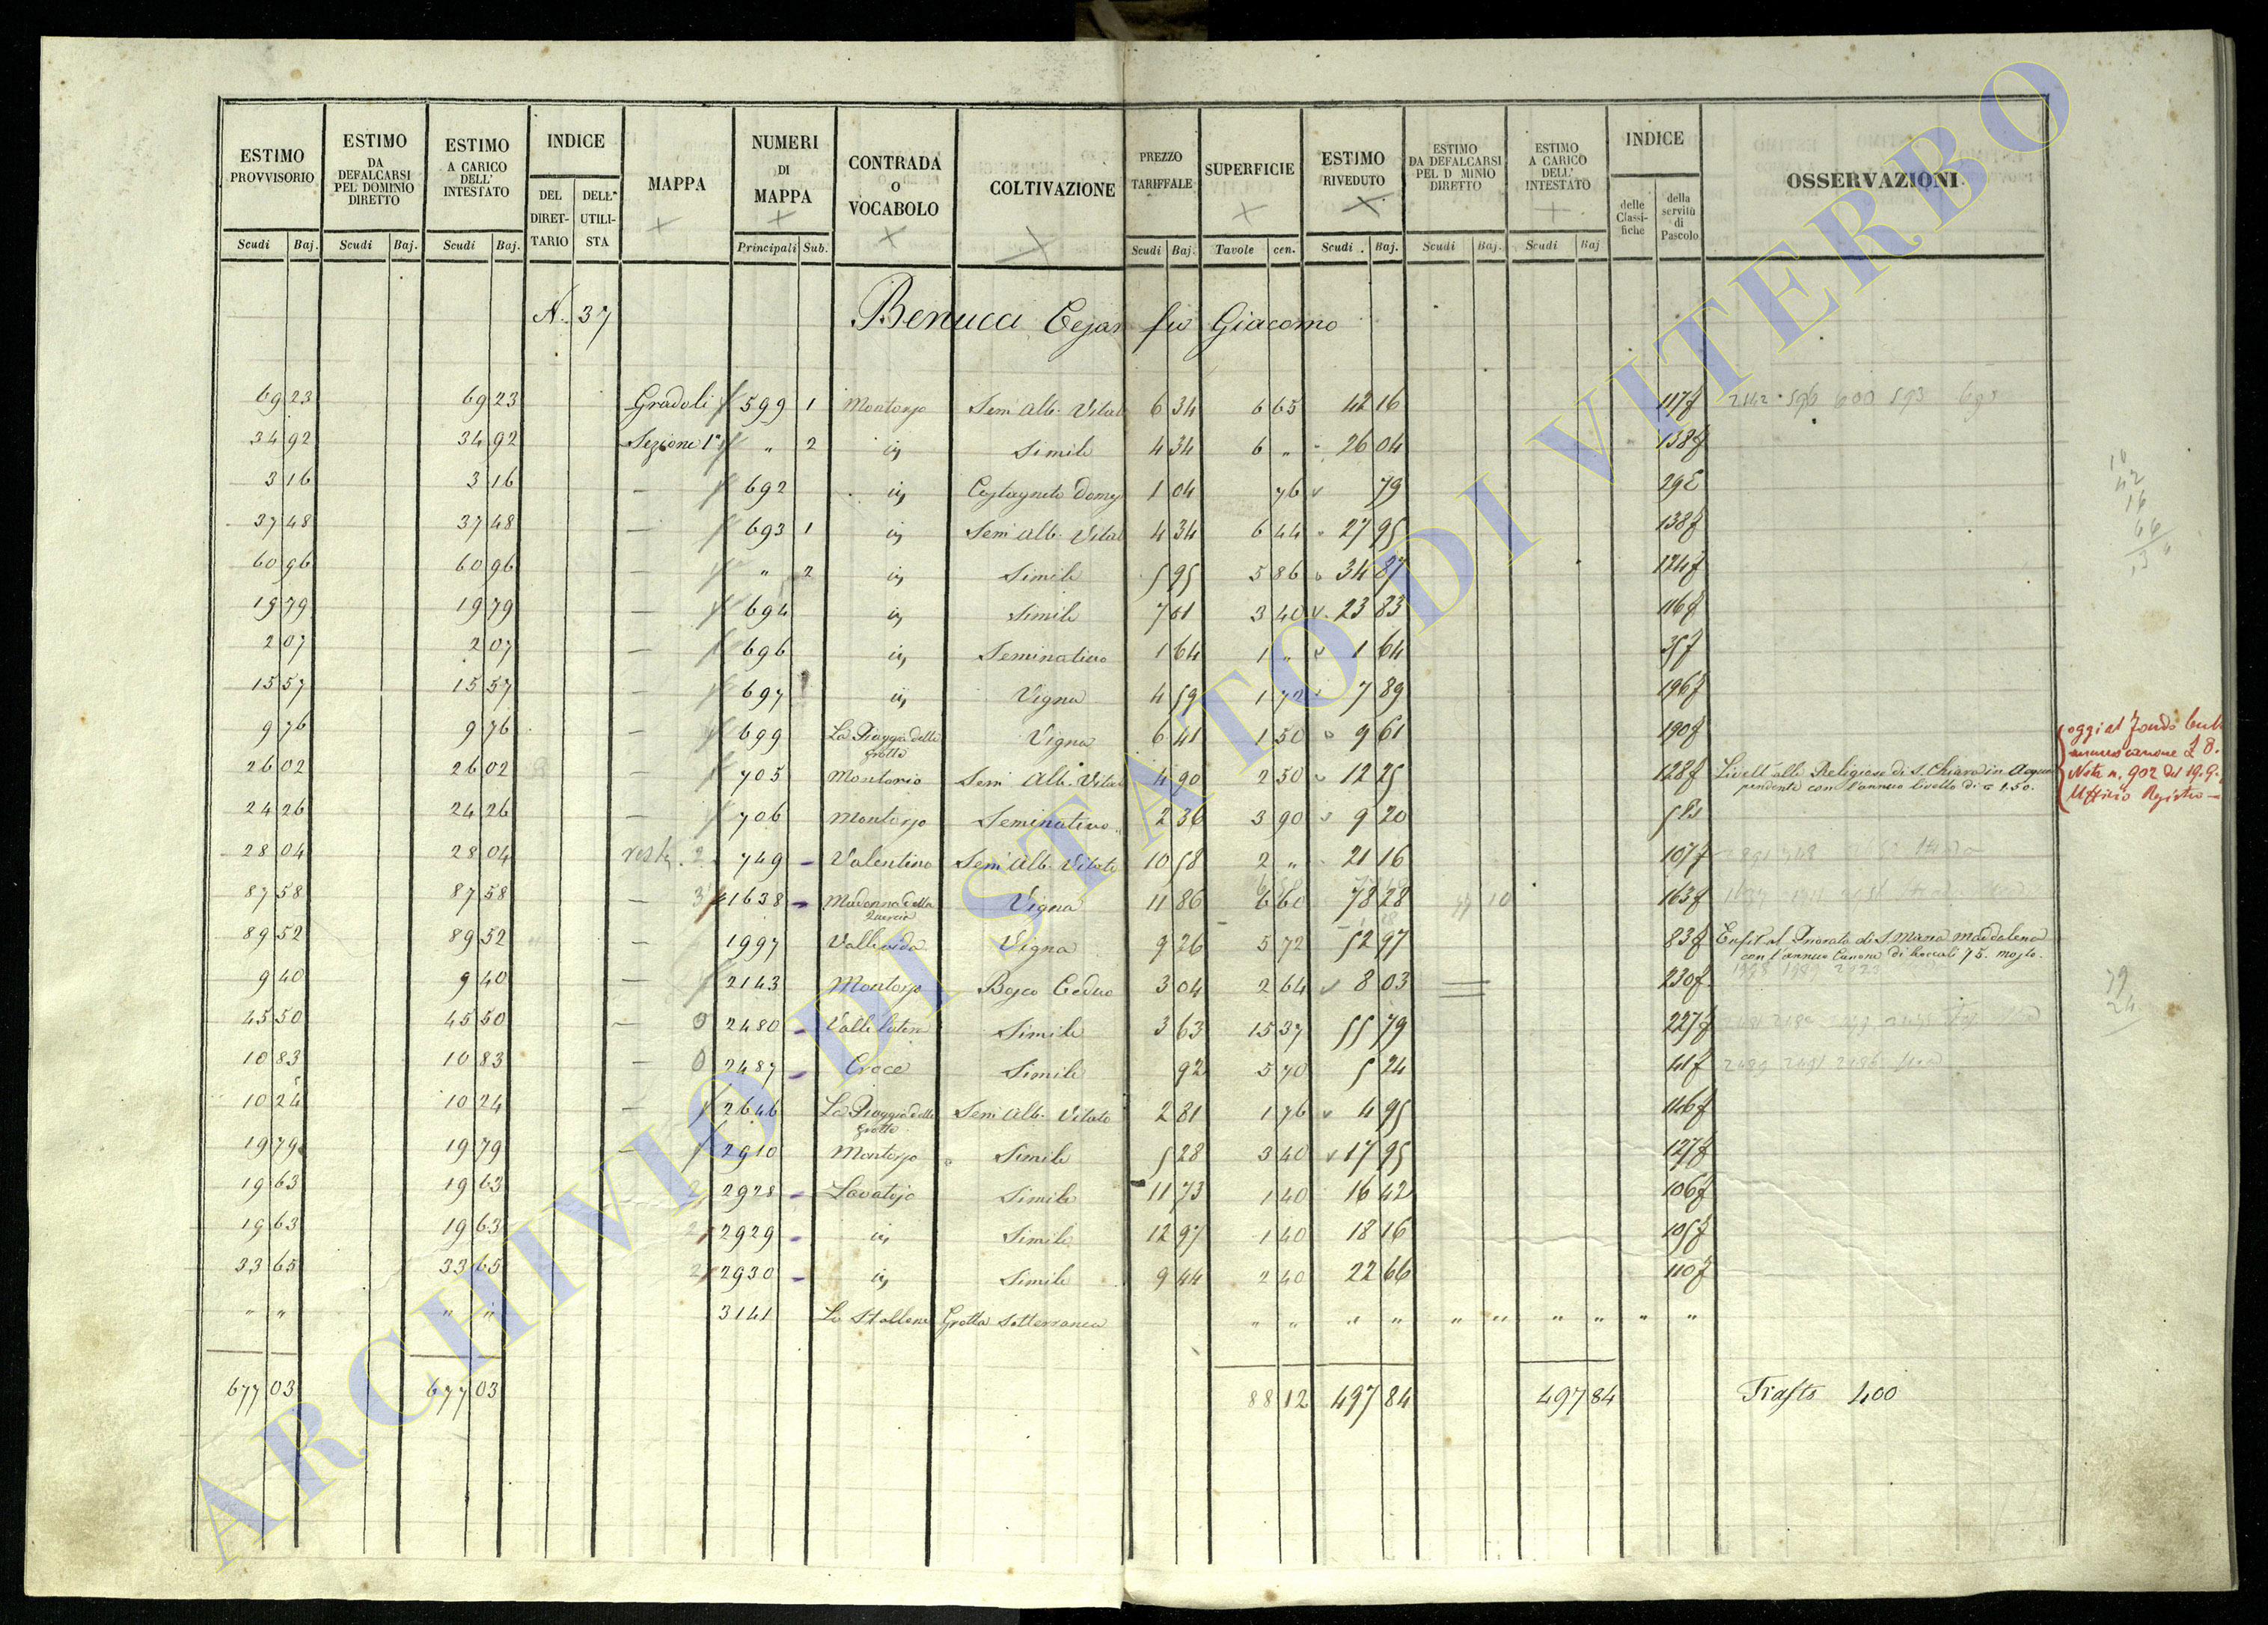 ESTIMO PROVVISORIO Scudi Baj. ESTIMO DA DEFALCARSI PEL DOMINIO DIRETTO Scudi Baj. ESTIMO A CARICO DELL' INTESTATO Scudi Baj. INDICE DEL DIRET-TARIO DELL' UTILI-STA MAPPA NUMERI DI MAPPA Principali Sub. CONTRADA O VOCABOLO COLTIVAZIONE PREZZO TARIFFALE Scudi Baj. SUPERFICIE Tavole cen. ESTIMO RIVEDUTO Scudi Baj. ESTIMO DA DEFALCARSI PEL D MINIO DIRETTO Scudi Baj. ESTIMO A CARICO DELL' INTESTATO Scudi Baj INDICE delle Classi-fiche della servitù di Pascolo OSSERVAZIONI
N. 37 Benucci Cesar fu Giacomo
69 23 69 23 Gradoli 599 1 Montorso Sem Alb. Vitat 6 34 6 65 42 16 117f
34 92 34 92 Sezione 1ª " 2 in Simile 4 34 6 " 26 04 138f
3 16 3 16 — 692 in Castagneto Dom 1 04 76 79 29
37 48 37 48 — 693 1 in Sem Alb. Vitat 4 34 6 44 27 95 138f
60 96 60 96 — " 2 in Simile 5 95 5 86 34 87 124f
19 79 19 79 — 694 in Simile 7 01 3 40 23 83 116f
2 07 2 07 — 696 in Seminativo 1 64 1 " 1 64 35f
15 57 15 57 — 697 in Vigna 4 59 1 72 7 89 196f
9 76 9 76 — 699 La Piaggia delle Grotte Vigna 6 41 1 50 9 61 190f
26 02 26 02 — 705 Montorio Sem Alb. Vitat 4 90 2 50 12 25 128f Livell alle Religiose di S. Chiara in Acqua
pendente con l'annuo livello di 1.50.
24 26 24 26 — 706 Montorso Seminativo 2 36 3 90 9 20
28 04 28 04 749 Valentino Sem Alb. Vitato 10 58 2 " 21 16 107f
87 58 87 58 — 1638 Madonna della Quercia Vigna 11 86 6 60 78 28 163f
89 52 89 52 — 1997 Vallivida Vigna 9 26 5 72 52 97 83f Enfit. al Priorato di S. Maria Maddalena
con l'annuo Canone di boccali 75. mosto.
9 40 9 40 — 2143 Montorso Bosco Ceduo 3 04 2 64 8 03 230f
45 50 45 50 — 2480 Simile 3 63 15 37 55 79 227f
10 83 10 83 — 2487 Croce Simile 92 5 70 5 24 41f
10 24 10 24 — 2646 La Piaggia delle Grotte Sem Alb. Vitato 2 81 1 76 4 95 146f
19 79 19 79 — 2910 Montorso Simile 5 28 3 40 17 95 127f
19 63 19 63 2928 Lavatojo Simile 11 73 1 40 16 42 106f
19 63 19 63 2929 in Simile 12 97 1 40 18 16 105f
33 65 33 65 2930 in Simile 9 44 2 40 22 66 110f
" " " " 3141 Grotta Sotterranea " " " " " " " " " "
677 03 677 03 88 12 497 84 497 84 400
oggi al Fondo
annuo canone
Nota n. 902 del 19.9.
Ufficio Registro
ARCHIVIO DI STATO DI VITERBO